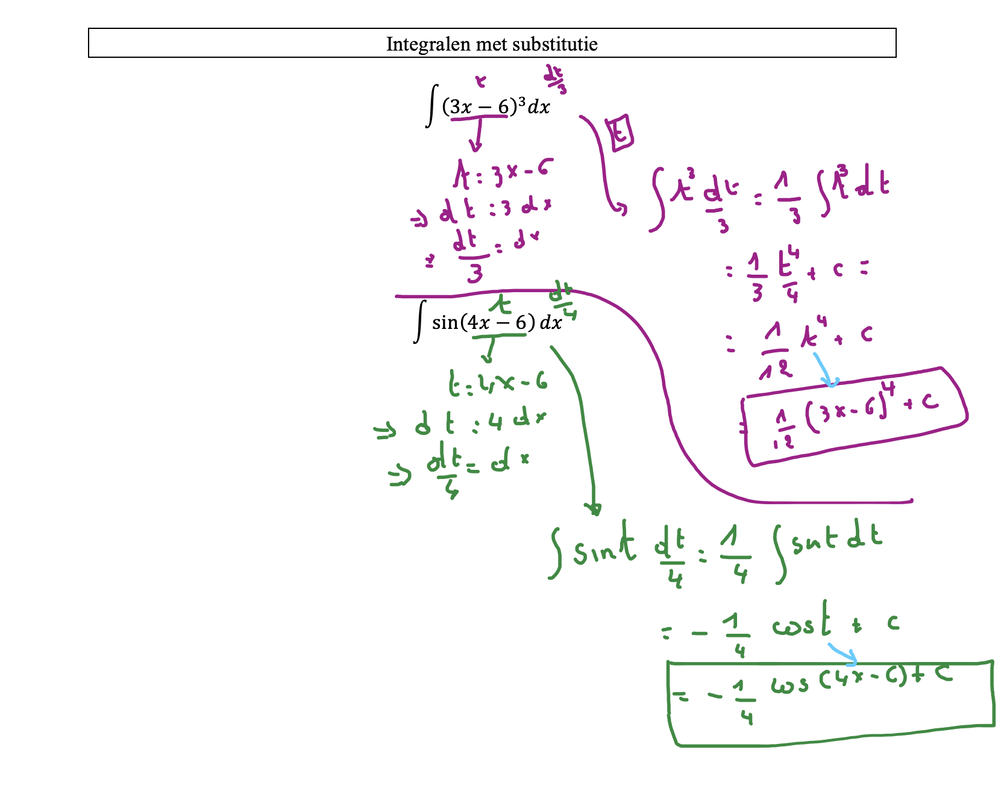 Integralen met substitutie
t dt/3
∫(3x − 6)³dx
t
t = 3x - 6
⇒ dt = 3 dx
= dt/3 = dx
∫ t³ dt/3 = 1/3 ∫ t³ dt
= 1/3 t⁴/4 + c =
= 1/12 t⁴ + c
= 1/12 (3x - 6)⁴ + c
t dt/4
∫ sin(4x − 6) dx
t = 4x - 6
⇒ dt = 4 dx
⇒ dt/4 = dx
∫ sin t dt/4 = 1/4 ∫ sin t dt
= - 1/4 cos t + c
= - 1/4 cos (4x - 6) + c